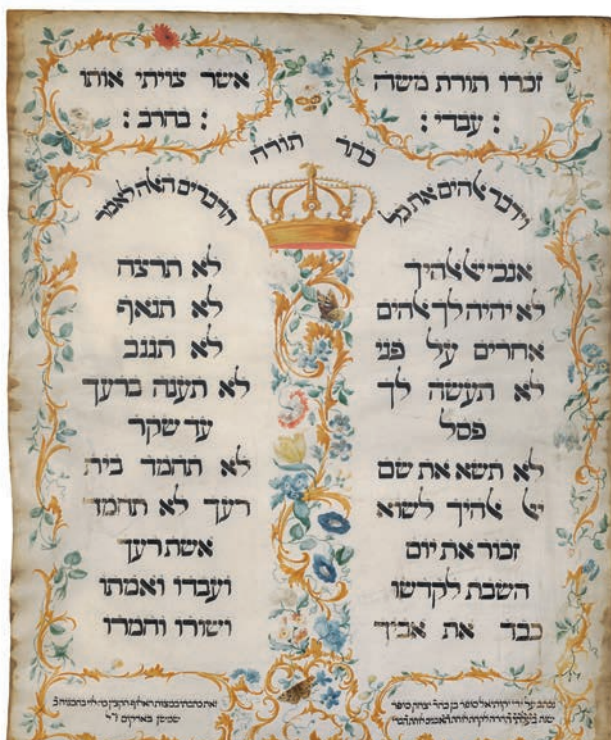 זכרו תורת משה
עבדי :
אשר צויתי אותו
בחרב :
כתר תורה
וידבר אלהים את כל
הדברים האלה לאמר
אנכי יי אלהיך
לא יהיה לך אלהים
אחרים על פני
לא תעשה לך
פסל
לא תשא את שם
יי אלהיך לשוא
זכור את יום
השבת לקדשו
כבד את אביך
לא תרצח
לא תנאף
לא תגנב
לא תענה ברעך
עד שקר
לא תחמד בית
רעך לא תחמד
אשת רעך
ועבדו ואמתו
ושורו וחמרו
נכתב על ידי יקותיאל סופר בן יצחק סופר